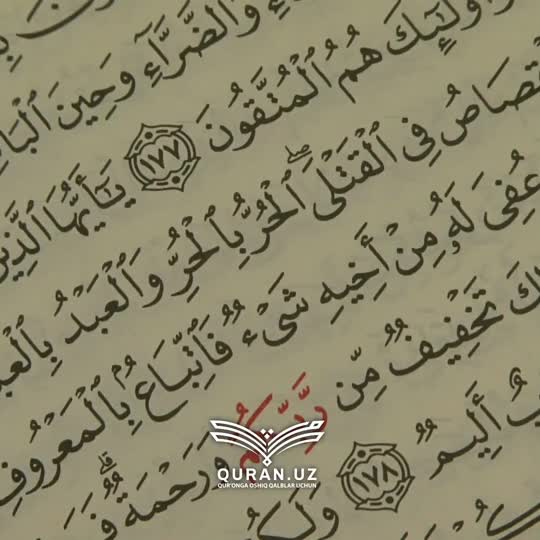 وَٱلضَّرَّآءِ وَحِينَ
وَأُو۟لَٰٓئِكَ هُمُ ٱلْمُتَّقُونَ ١٧٧ يَٰٓأَيُّهَا ٱلَّذِينَ
ٱلْقِصَاصُ فِى ٱلْقَتْلَى ۖ ٱلْحُرُّ بِٱلْحُرِّ وَٱلْعَبْدُ
عُفِىَ لَهُۥ مِنْ أَخِيهِ شَىْءٌ فَٱتِّبَاعٌۢ بِٱلْمَعْرُوفِ
تَخْفِيفٌ مِّن رَّبِّكُمْ وَرَحْمَةٌ ۗ
أَلِيمٌ ١٧٨
QURAN.UZ
QUR'ONGA OSHIQ QALBLAR UCHUN